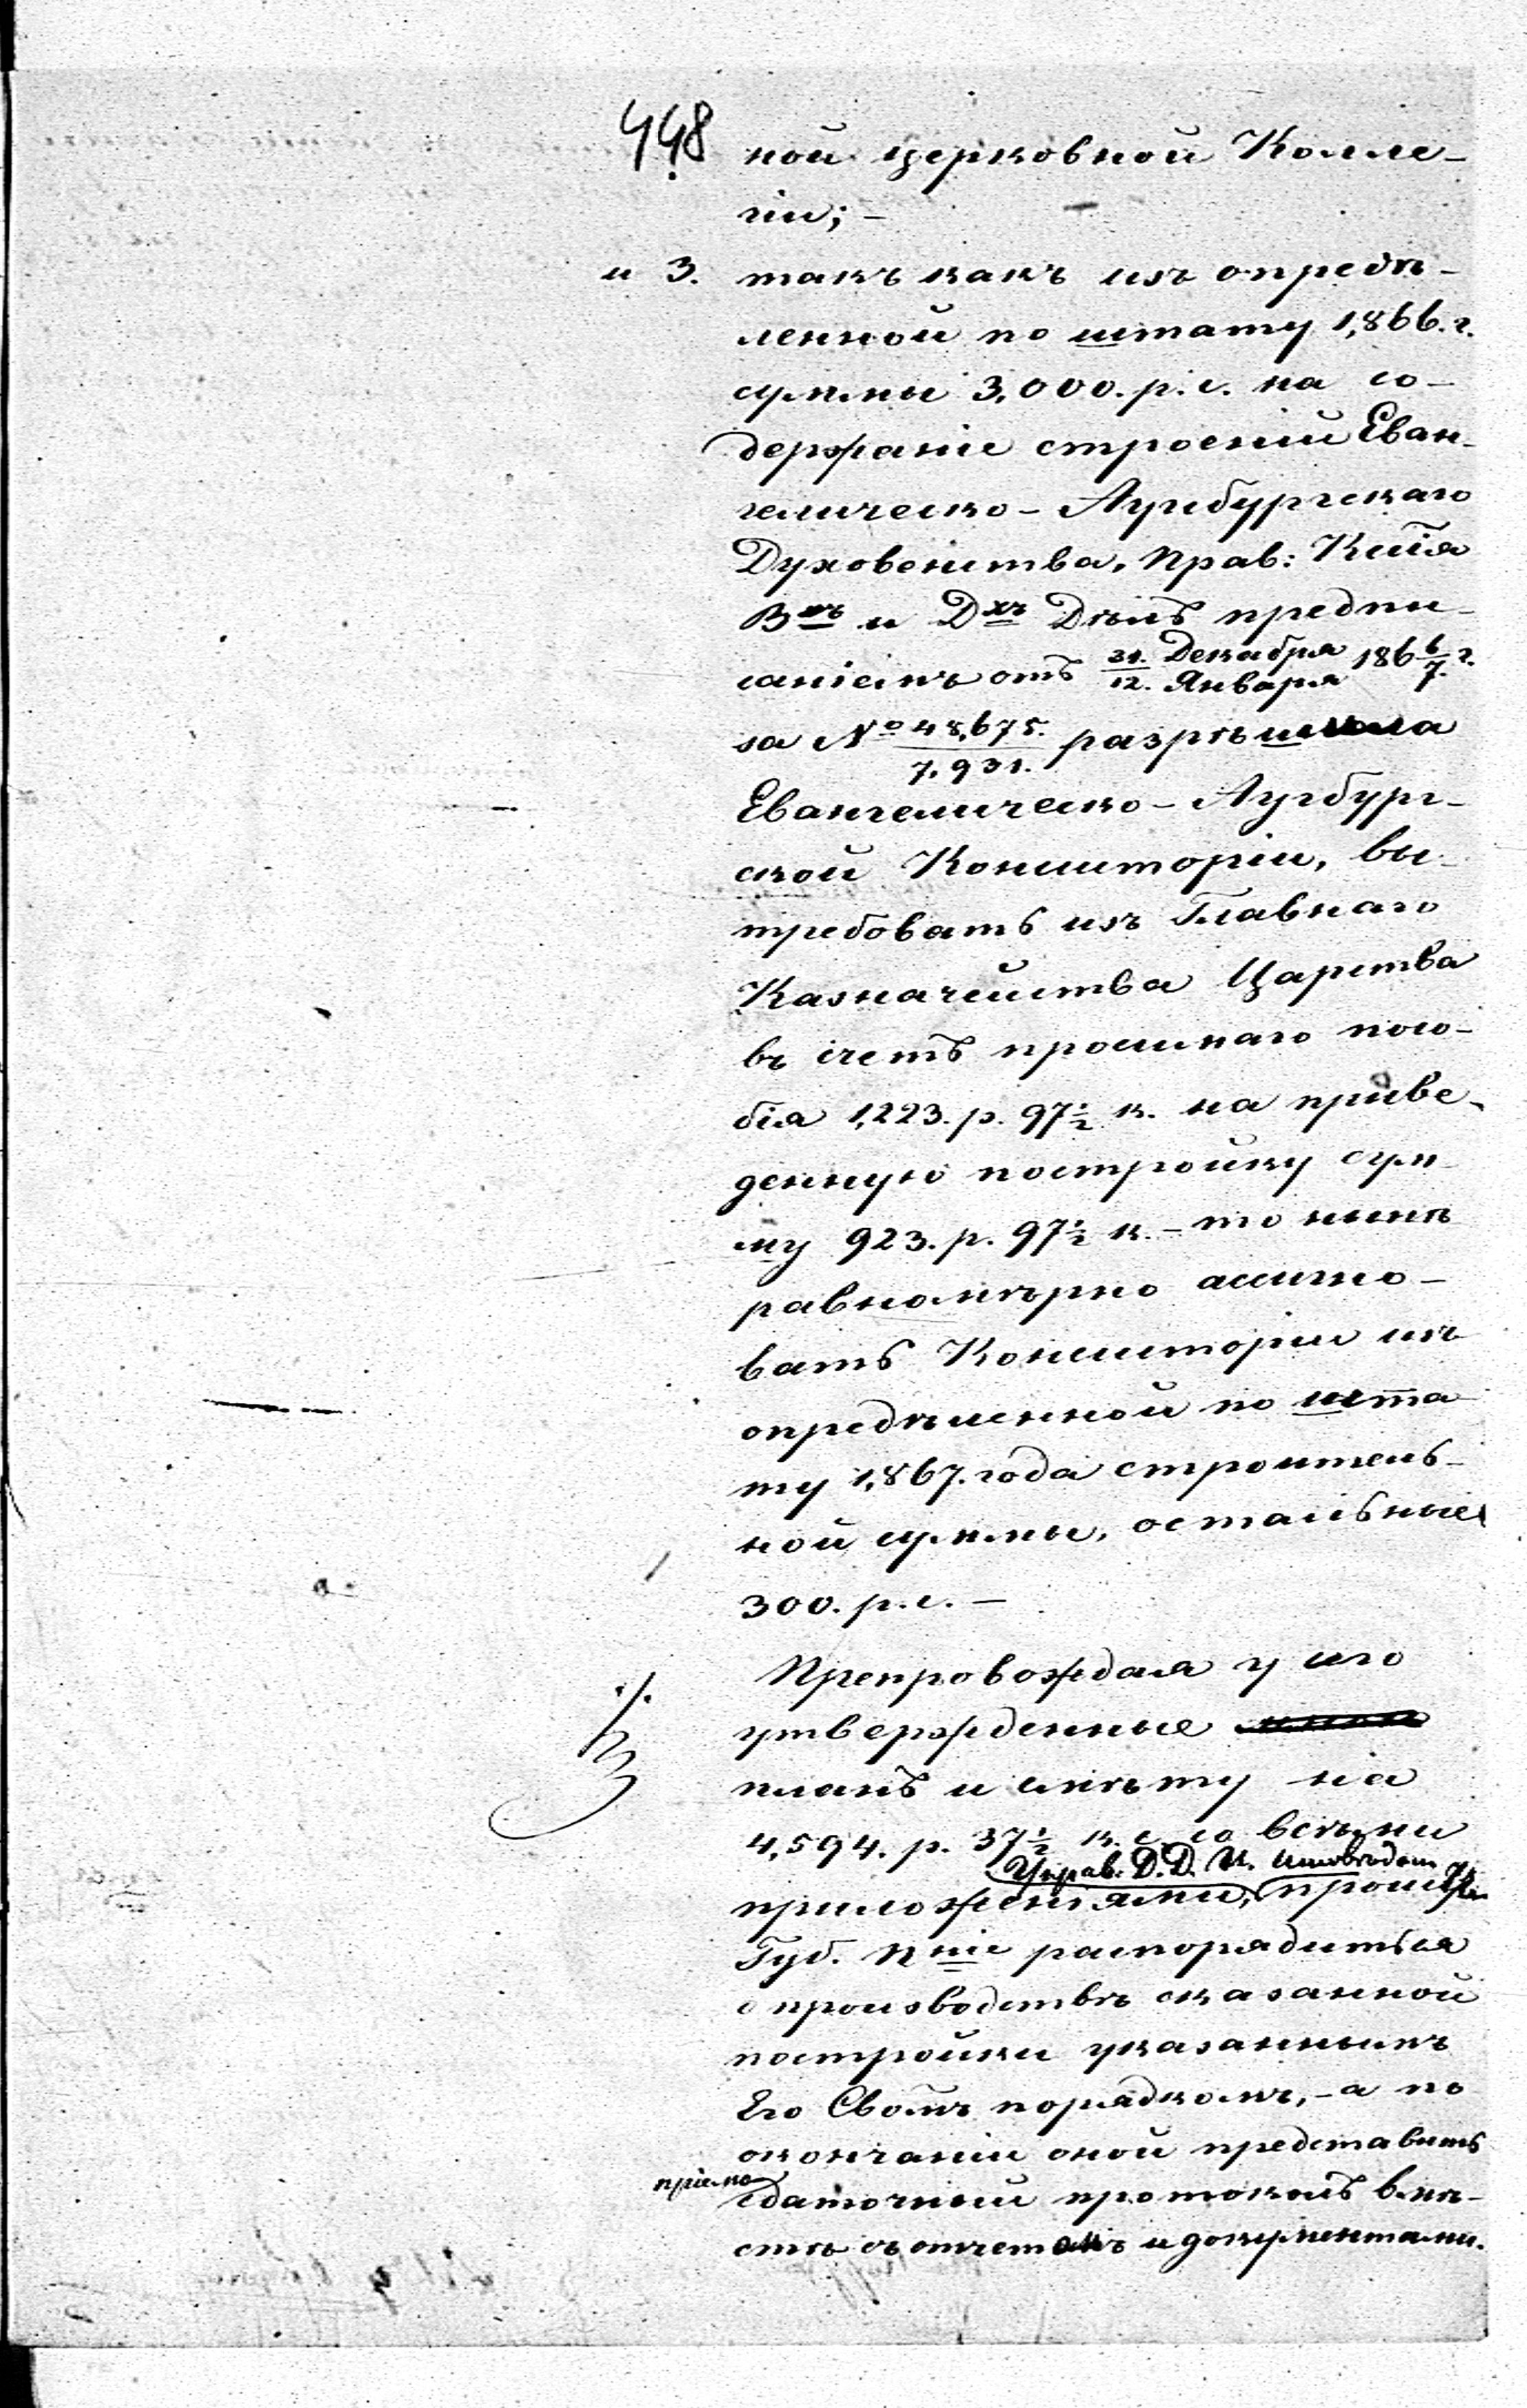 448
ной церковной Колле-
гіи; -
и 3. такъ какъ изъ опредѣ-
ленной по штату 1,866. г.
суммы 3,000. р. с. на со-
держаніе строеній Еван-
гелическо - Аугсбургскаго
Духовенства, Прав: Кссія
Внъ и Дхъ Дѣлъ предпи-
саніемъ отъ 31. Декабря / 12. Января 186 6/7. г.
за № 48,675. / 7,931. разрѣшила
Евангелическо - Аугсбург-
ской Консисторіи, вы-
требовать изъ Главнаго
Казначейства Царства
въ счетъ просимаго посо-
бія 1,223. р. 97½ к. на приве-
денную постройку сум-
му 923. р. 97½ к. - то нынѣ
равномѣрно ассигно-
вать Консисторіи изъ
опредѣленной по шта-
ту 1,867. года строитель-
ной суммы, остальные
300. р. с. -
Препровождая у сего
утвержденные
планъ и смѣту на
4,594. р. 37½ к. с. со всѣми
Управ: Д. Д. И.
приложеніями,
Губ. Пніе распорядиться
о производствѣ сказанной
постройки указаннымъ
Его Свомъ порядкомъ, - а по
окончаніи оной представить
пріемо
сдаточный протоколъ вмѣ-
стѣ съ отчетомъ и документами.